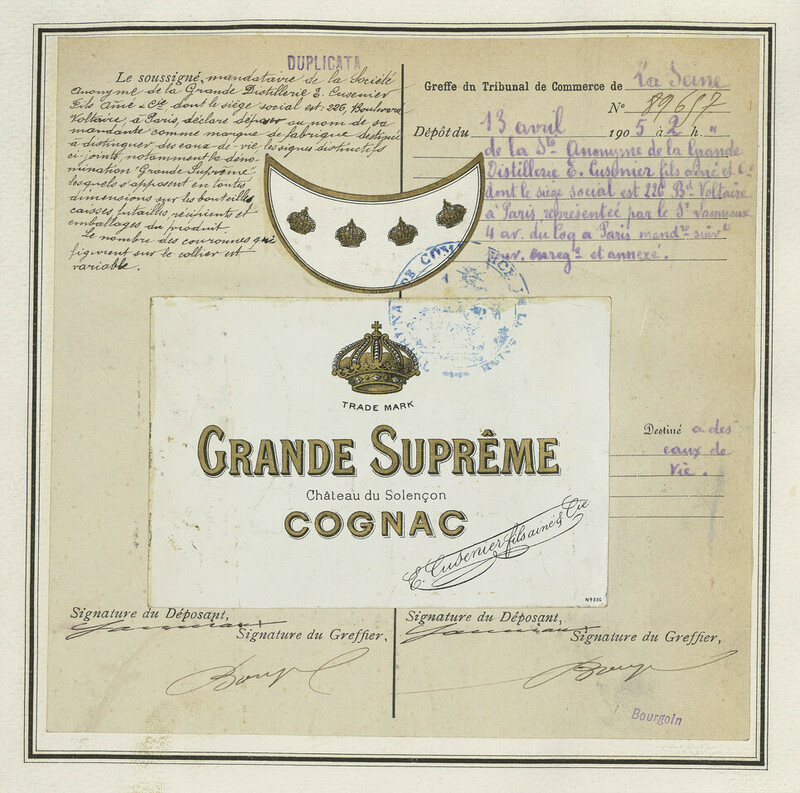 DUPLICATA
Le soussigné, mandataire de la Société
Anonyme de la Grande Distillerie E. Cusenier
Fils Aîné & Cie dont le siège social est: 226, Boulevard
Voltaire, à Paris, déclare déposer au nom de sa
mandante comme marque de fabrique destinée
à distinguer des eaux-de-vie les signes distinctifs
ci-joints, notamment la déno-
mination Grande Suprême
lesquels s'apposent en toutes
dimensions sur les bouteilles,
caisses, futailles, récipients et
emballages du produit.
Le nombre des couronnes qui
figurent sur le collier est
variable.
Greffe du Tribunal de Commerce de La Seine
N° 89657
Dépôt du 13 avril 1905 à 2 h. "
de la Sté Anonyme de la Grande
Distillerie E. Cusenier fils aîné et Cie
dont le siège social est 226 Bd Voltaire
à Paris représentée par le Sr
4 av. du Coq à Paris mandre suivt
pouv. enregé et annexé.
TRADE MARK
GRANDE SUPRÊME
Château du Solençon
COGNAC
E. Cusenier fils aîné & Cie
Destiné a des
eaux de
vie.
Signature du Déposant,
Signature du Greffier,
Signature du Déposant,
Signature du Greffier,
Bourgoin